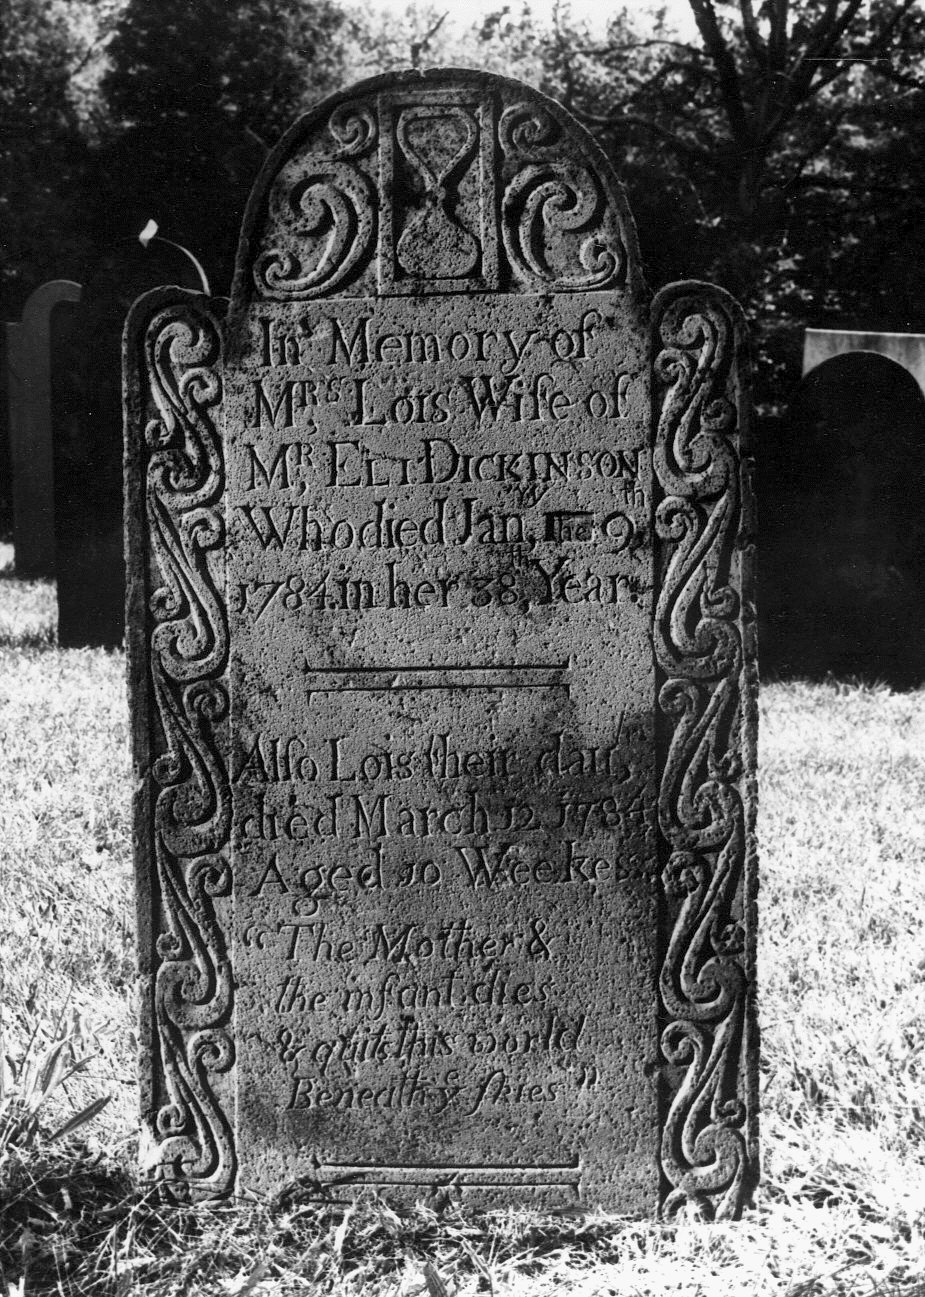 In Memory of
Mrs, Lois Wife of
Mr, Eli Dickinson
Who died Jany, the 9th
1784. in her 38th, Year.
Alſo Lois their daur,
died March 12 1784,
Aged 10 Weekes
“The Mother &
the infant dies
& quits this world
Beneath ye ſkies”